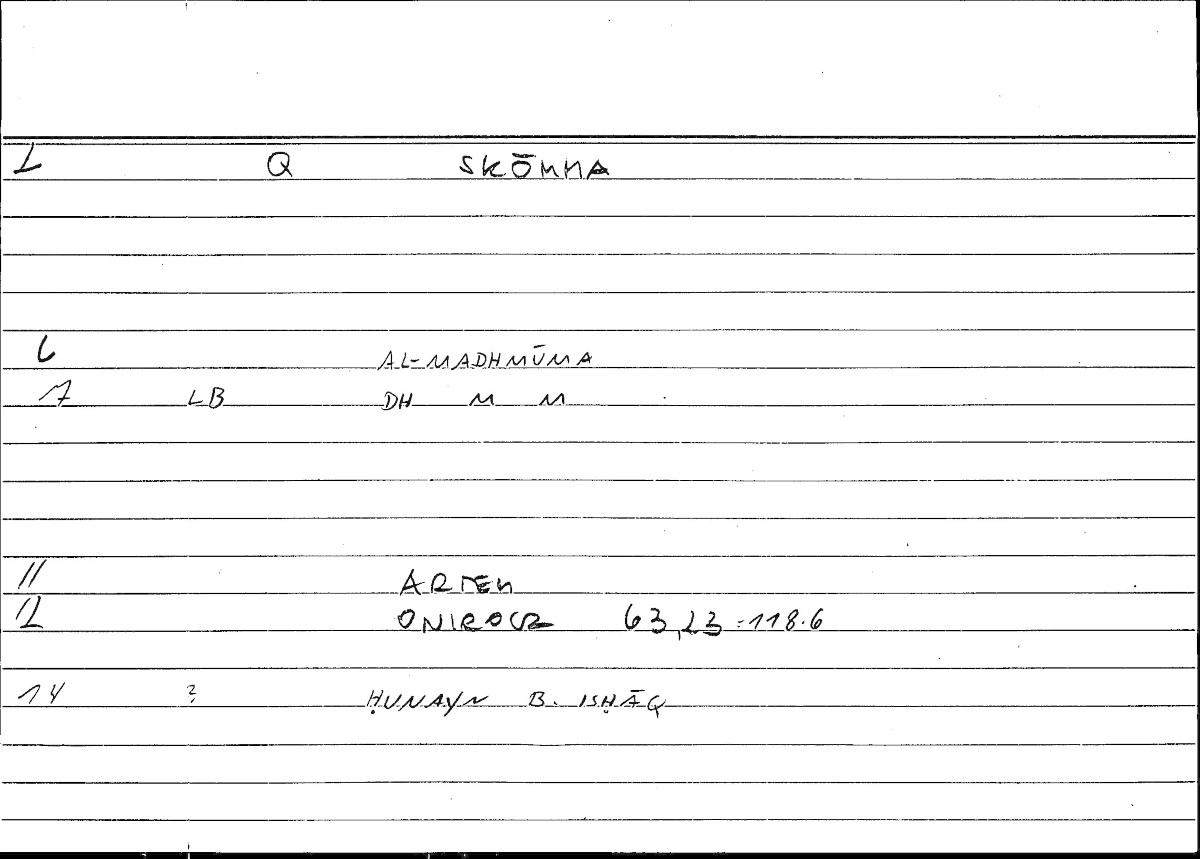 1 Q SKŌMMA
6 AL-MADHMŪMA
7 LB DH M M
11 ARTEM
12 ONIROCR 63,23=118.6
14 ? ḤUNAYN B. ISḤĀQ